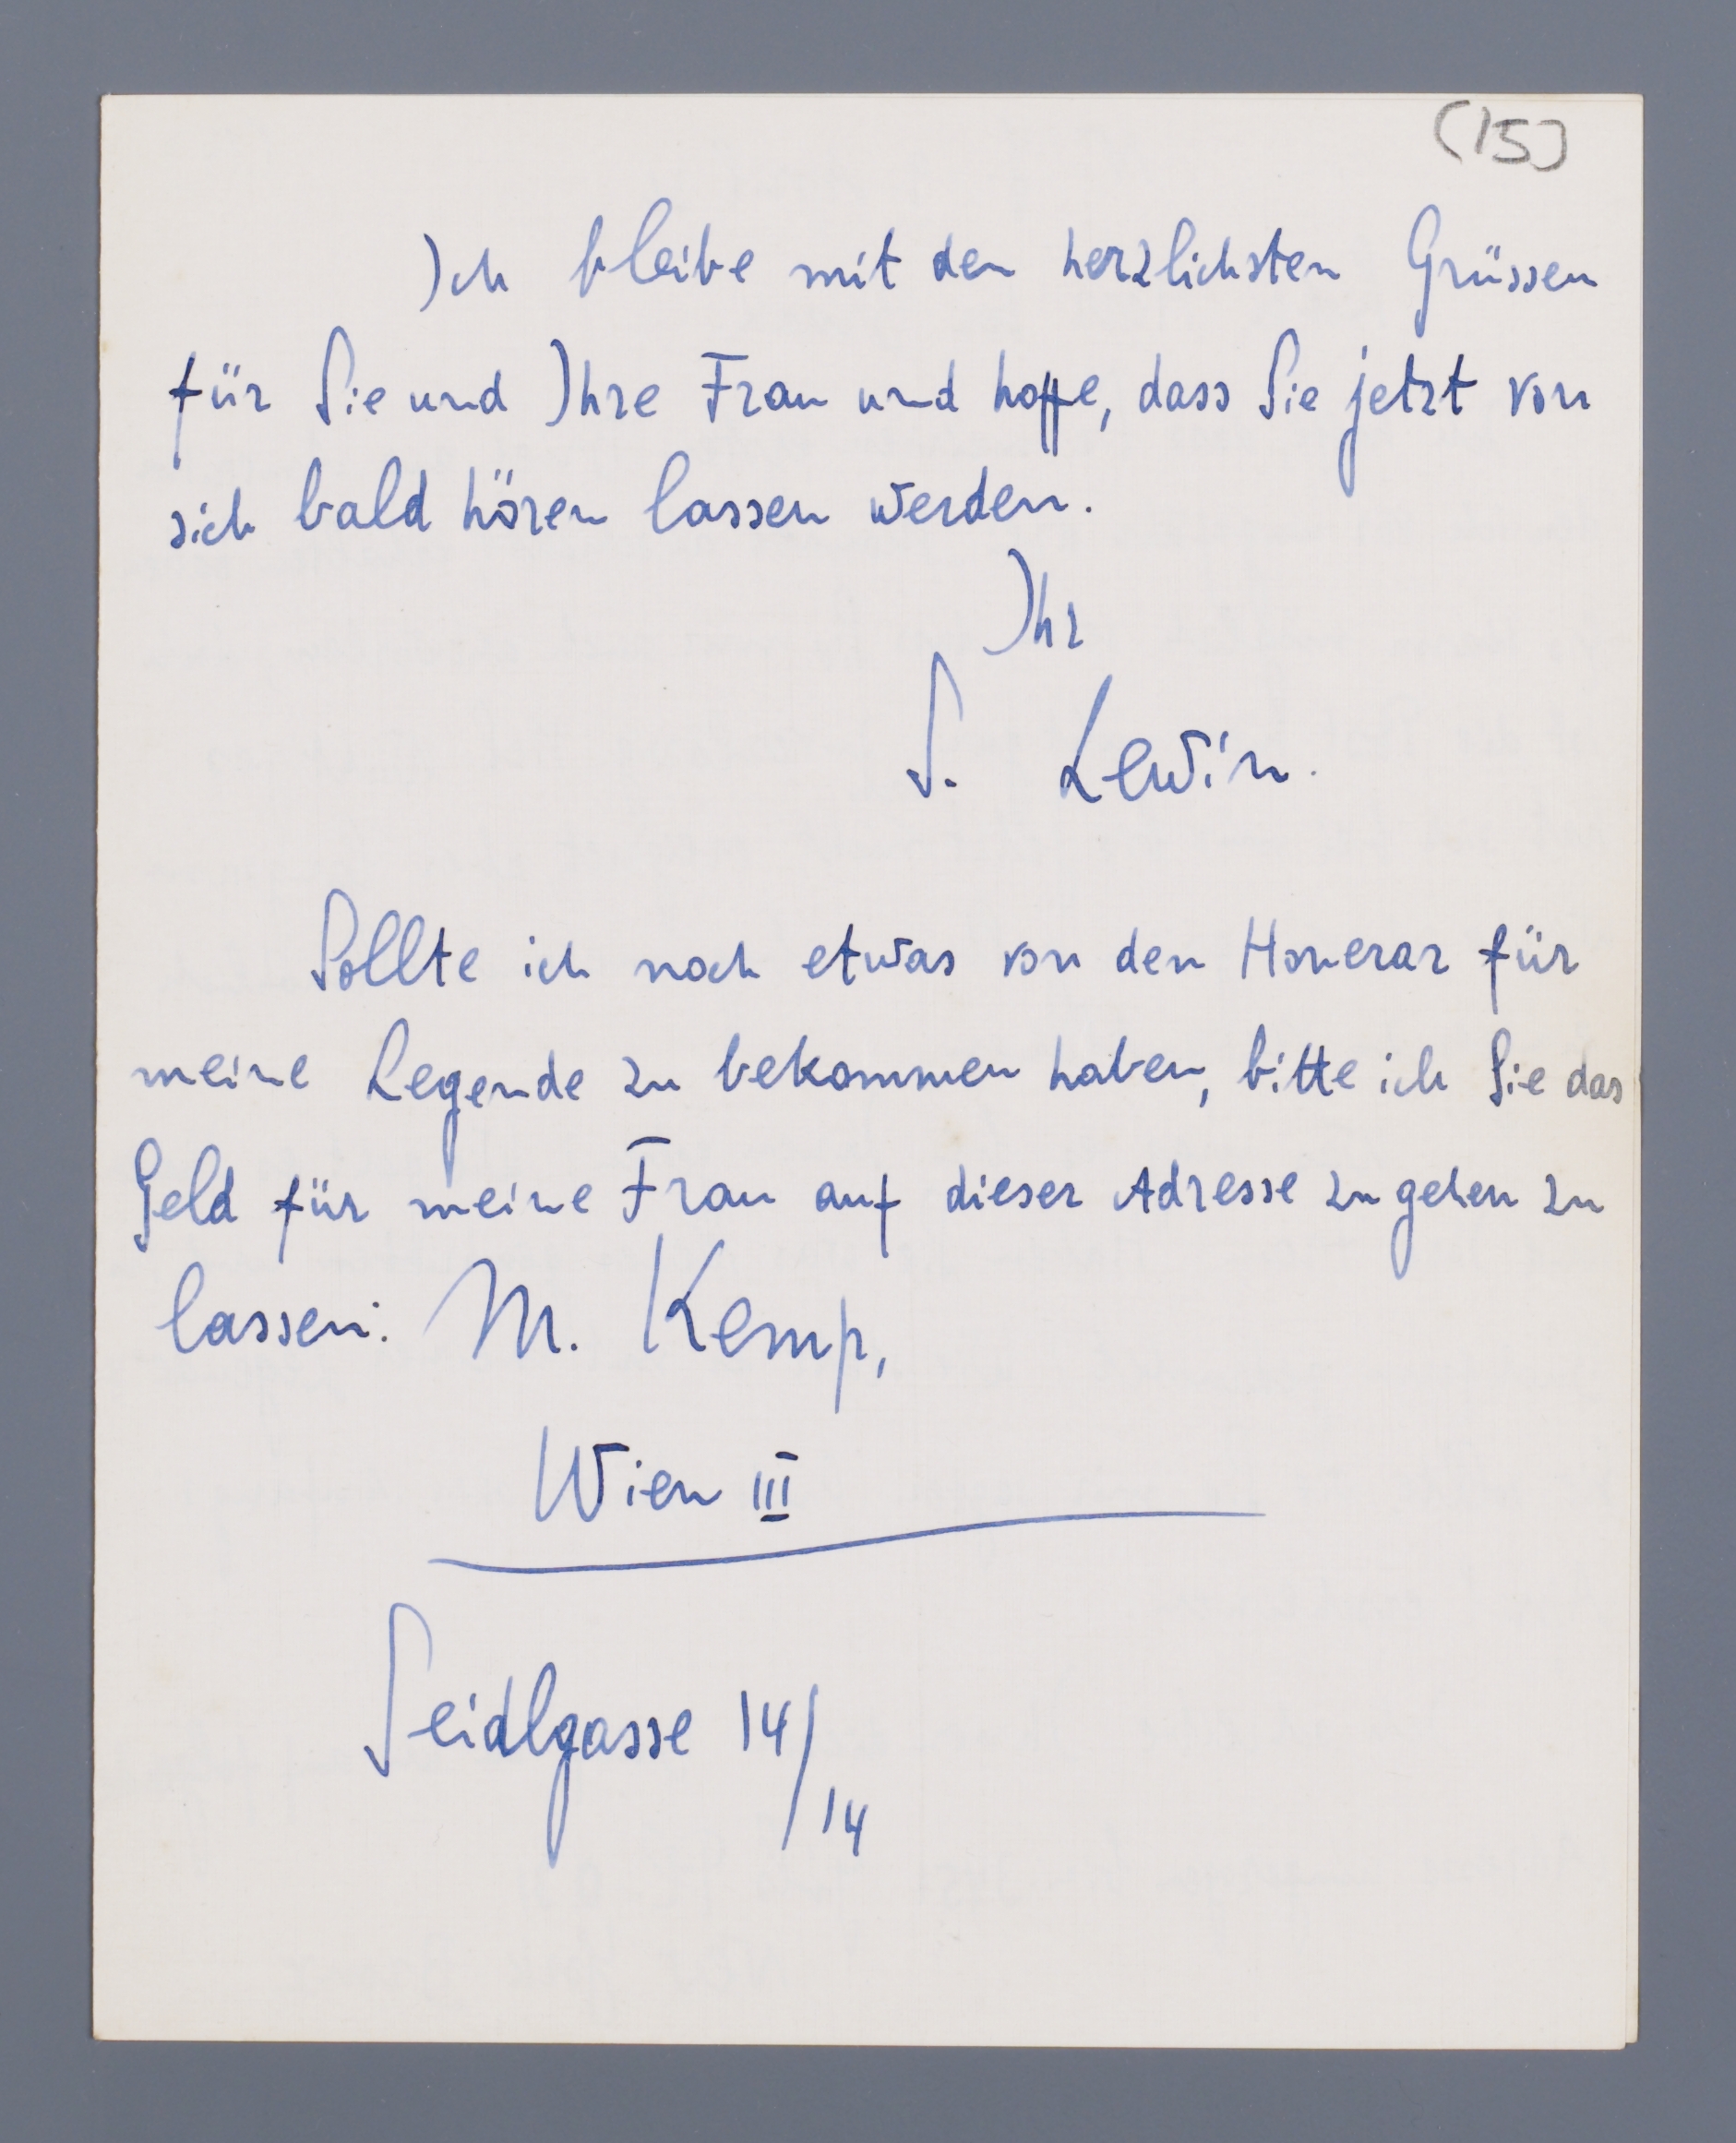 (15)
Ich bleibe mit den herzlichsten Grüssen
für Sie und Ihre Frau und hoffe, dass Sie jetzt von
sich bald hören lassen werden.
Ihr
S. Lewin.
Sollte ich noch etwas von den Honerar für
meine Legende zu bekommen haben, bitte ich Sie das
Geld für meine Frau auf dieser Adresse zu gehen zu
lassen: M. Kemp,
Wien III
Seidlgasse 14/14